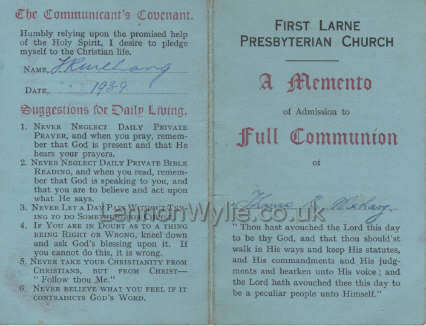 The Communicant's Covenant.
Humbly relying upon the promised help
of the Holy Spirit, I desire to pledge
myself to the Christian life.
NAME,
DATE, 1939
Suggestions for Daily Living.
1. NEVER NEGLECT DAILY PRIVATE
PRAYER, and when you pray, remember
that God is present and that He
hears your prayers.
2. NEVER NEGLECT DAILY PRIVATE BIBLE
READING, and when you read, remember
that God is speaking to you, and
that you are to believe and act upon
what He says.
3. NEVER LET A DAY PASS WITHOUT TRY-
ING TO DO SOMETHING FOR CHRIST.
4. IF YOU ARE IN DOUBT AS TO A THING
BEING RIGHT OR WRONG, kneel down
and ask God's blessing upon it. If
you cannot do this, it is wrong.
5. NEVER TAKE YOUR CHRISTIANITY FROM
CHRISTIANS, BUT FROM CHRIST—
"Follow thou Me."
6. NEVER BELIEVE WHAT YOU FEEL IF IT
CONTRADICTS GOD'S WORD.
FIRST LARNE
PRESBYTERIAN CHURCH
A Memento
of Admission to
Full Communion
of
Thomas
"Thou hast avouched the Lord this day
to be thy God, and that thou should'st
walk in His ways and keep His statutes,
and His commandments and His judg-
ments and hearken unto His voice; and
the Lord hath avouched thee this day to
be a peculiar people unto Himself."
LennonWylie.co.uk